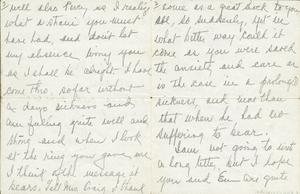 well also Lucy as I realize
what a strain you must
have had, and don't let
my absence worry you
as I shall be alright. I have
come thro. so far without
a days sickness and
am feeling quite well and
strong and when I look
at the ring you gave me
I think of the message it
bears. Tell Mrs Craig I thank
come as a great shock to you
all, so suddenly, yet in
what better way could it
come as you were saved
the anxiety and care as
in the case in a prolonged
sickness, and more than
that when he had no
suffering to bear.
I am not going to write
a long letter, but I hope
you and Em are quite